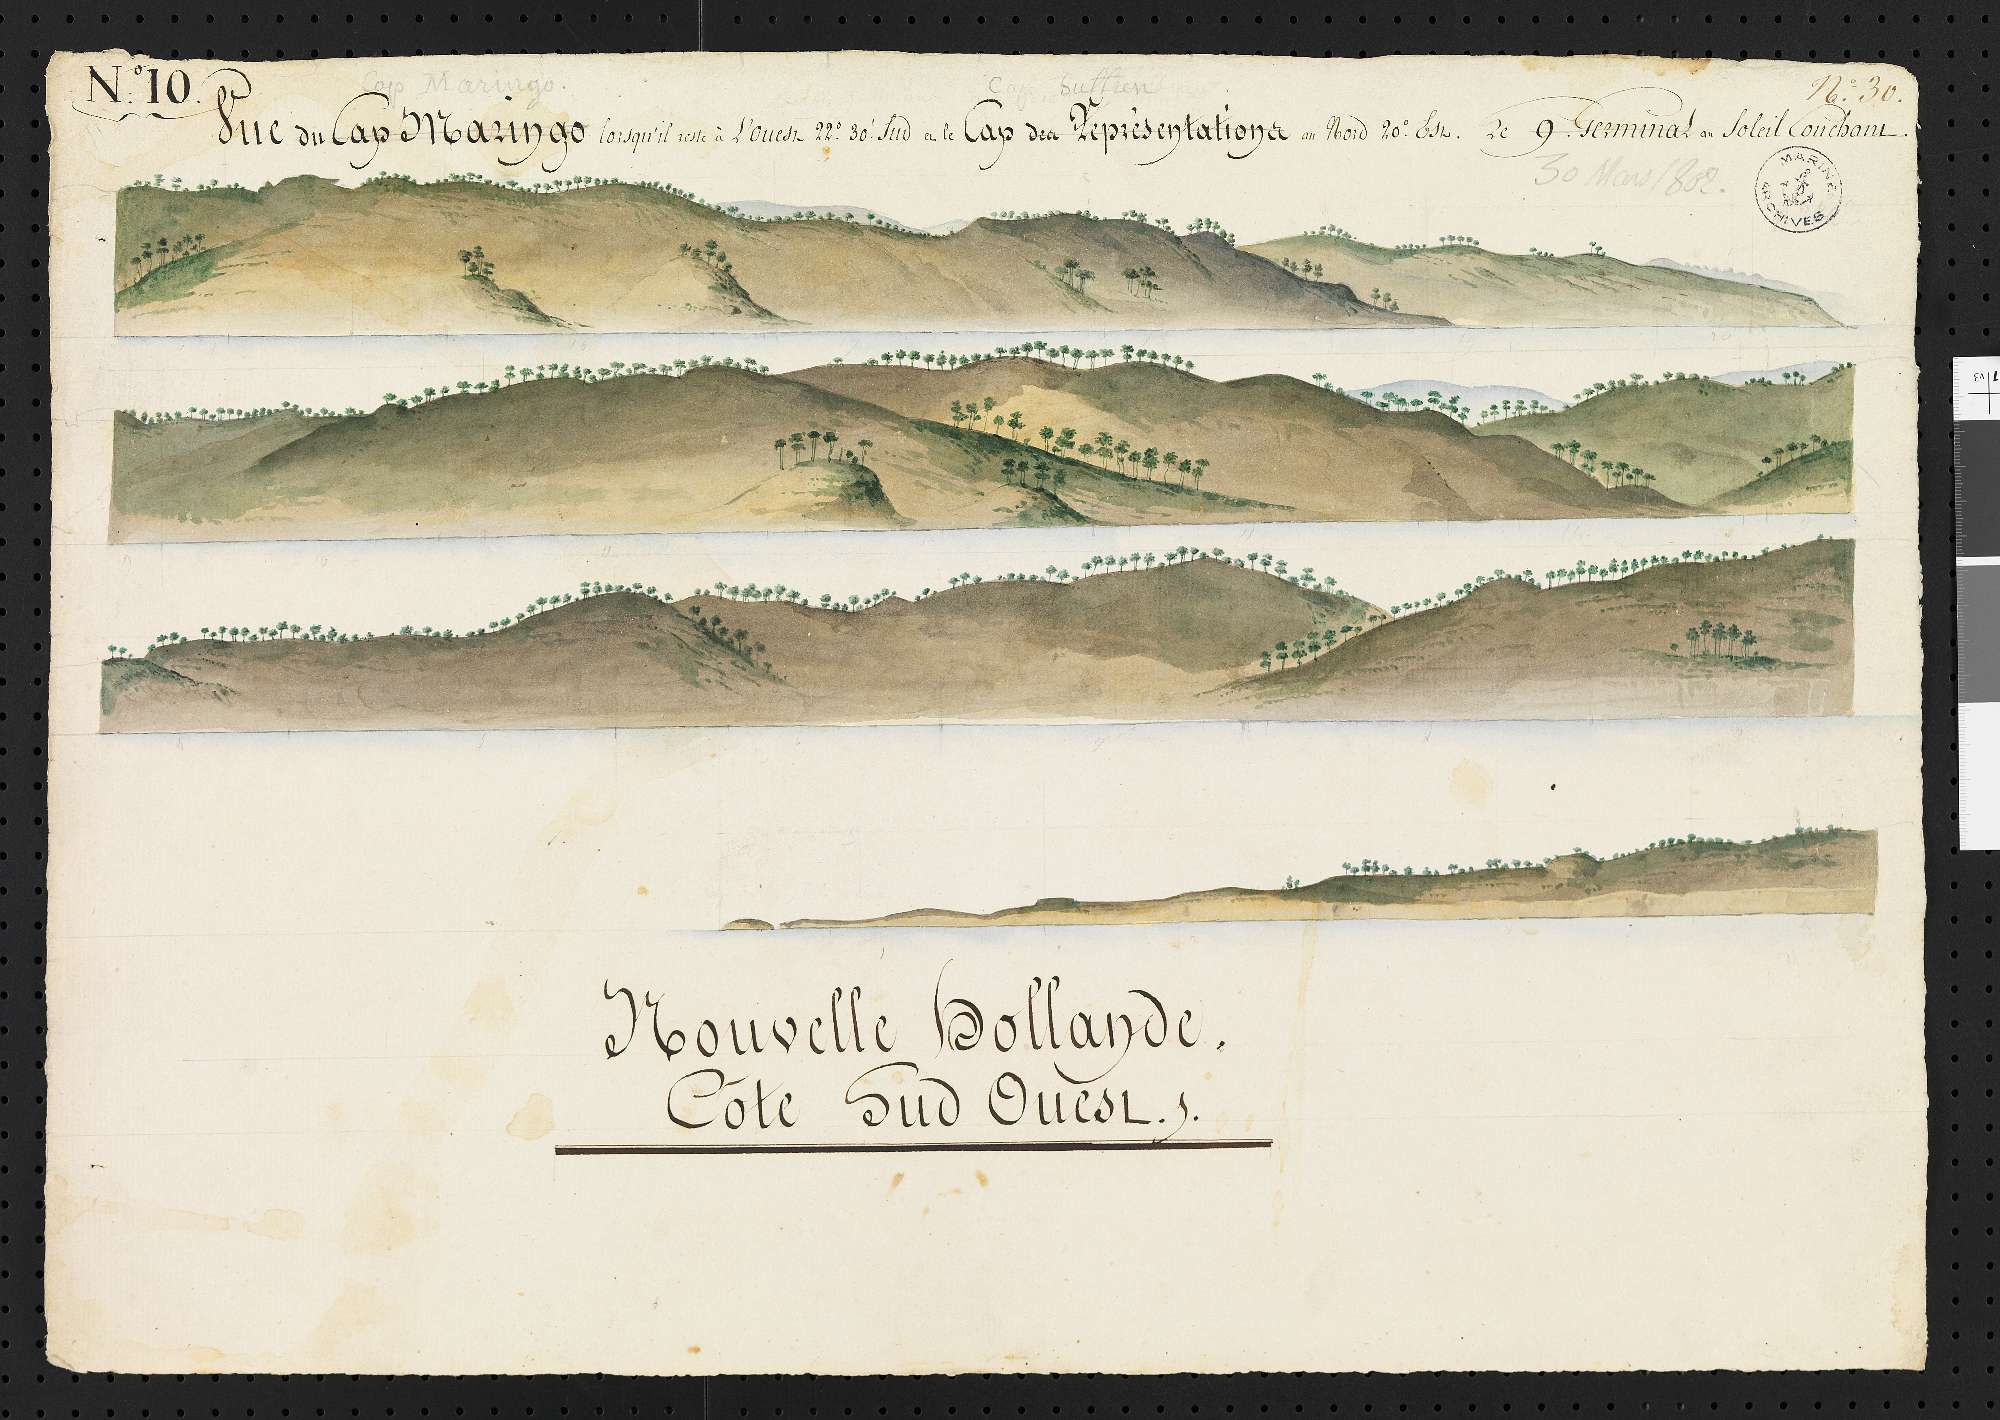 N.º 10.
Cap Maringo.
Cap Suffren
N.º 30.
Vue du Cap Maringo lorsqu'il reste à L'Ouest 22º 30' Sud et le Cap des Représentations au Nord 20º Est. Le 9. Germinal au Soleil Couchant.
30 Mars 1802.
MARINE
ARCHIVES
Nouvelle Hollande.
Côte Sud Ouest.